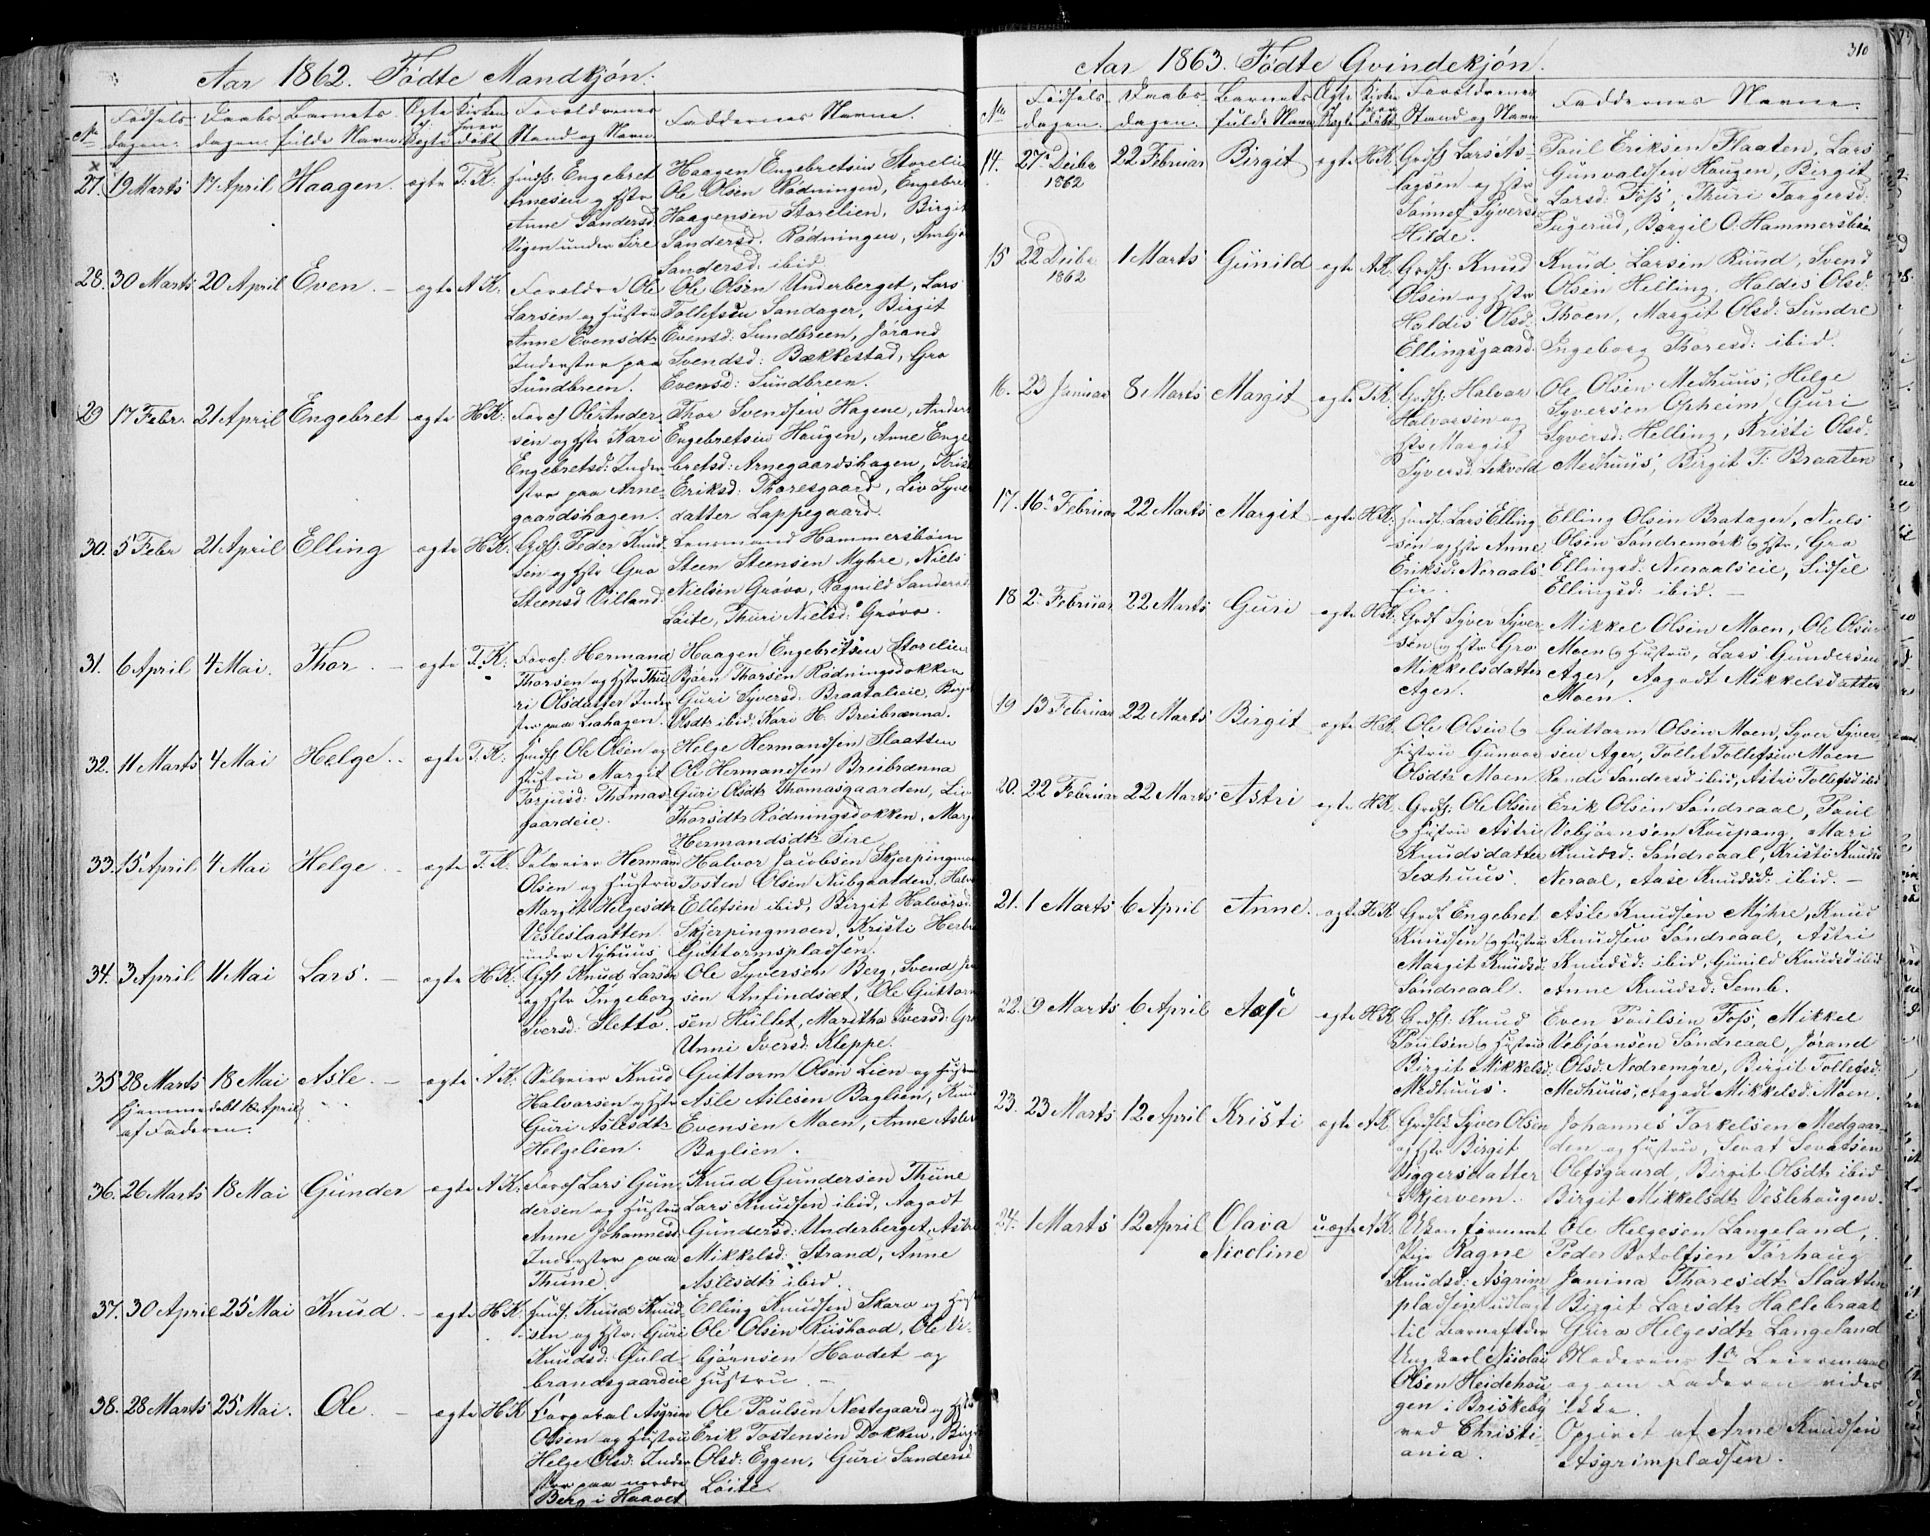 Aar 1862. Fødte Mandkjøn.
No Fødsels dagen. Daabs dagen. Barnets fulde Navn Ægte Uægte Kirken hvor døbt Forældrenes Stand og Navn Faddernes Navne.
27. 13 Marts 17 April Haagen. ægte T.K. Huusf. Engebret Haagen Engebretsen Storelien
Arnesen og Hstr Ole Olsen Rødningen, Engebret
Anne Sandersd Haagensen Storelien, Birgit
Vigen under Sire Sandersd: Rødningen,
Sandersd: ibid
28. 30 Marts 20 April Even. – ægte A K: Forældre Ole Ole Olsen Underberget, Lars
Larsen og Hustru Tollefsen Sandager, Birgit
Anne Evensdtr Evensd: Sundbreen, Jørand
Inderster paa Svendsd: Bækkestad, Gro
Sundbreen. Evensd: Sundbreen.
29 17 Febr. 21 April Engebret ægte H K: Ole Ander Thor Svendsen Hagene, Anders
sen og Hstr Kari Engebretsen Haugen, Anne Enge
Engebretsd: Inder bretsd: Arnegaardshagen, Krist
ster paa Arne- Eriksd: Thoresgaard, Liv Syver
gaardshagen. datter Lappegaard.
30. 5 Febr 21 April Elling ægte H K: Grdf: Peder Knud- Lensmand Hammersbøen
sen og Hstr Gro Steen Steensen Myhre, Niels
Steensd Villand. Nielsen Grøvo, Ragnild Sandersd
Løite, Thuri Nielsd: Grøvo.
31. 6 April 4 Mai. Thor. – ægte T.K: Hermand Haagen Engebretsen Storelien
Thorsen og Hstr Thu Bjørn Thorsen Rødningsdokken
ri Olsdatter Inder Guri Syversd: Braatalieie,
ster paa Liahagen. Olsdtr ibid: Kari H. Breibrænna.
32. 11 Marts 4 Mai Helge. ægte T.K: Huusf Ole Olsen og Helge Hermandsen Slaatten
Hustru Margit Ole Hermandsen Breibrænna
Torjusd: Thomas- Guri Olsdtr Thomasgaarden, Liv
gaardeie. Thorsdtr Rødningsdokken,
Hermandsdtr Sire
33. 15 April 4 Mai Helge. – ægte T.K: Selveier Hermand Halvor Jacobsen Skjerpingmoen
Olsen og Hustru Tosten Olsen Nubgaarden,
Margit Helgesdtr Ellefsen ibid, Birgit Halvorsd:
Vesleslaatten Skjerpingmoen, Kristi Herbr
under Nyhuus Guttormspladsen.
34. 3 April 11 Mai Lars. – ægte H K: Grdf Knud Larsen Ole Syversen Berg, Svend
og Hstr Ingeborg sen Anfindsæt, Ole Guttorm
Iversd: Sletto sen Hullet, Maritha Iversd:
Unni Iversd: Kleppe.
35 28 Marts 18 Mai Asle. – ægte A K: Selveier Knud Guttorm Olsen Lien og Hustru
Hjemmedøbt 12 April Halvorsen og Hstr Asle Aslesen Baglien,
af Faderen. Guri Aslesdtr Evensen Moen, Anne Asles
Helgelien. Baglien.
36. 26 Marts 18 Mai Gunder ægte A K: Lars Gun Knud Gundersen Thune
dersen og Hustru Lars Knudsen ibid, Aagodt
Anne Johannesd: Gundersd: Underberget,
Inderster paa Mikkelsd: Strand, Anne
Thune. Aslesdtr ibid.
37. 30 April 25 Mai Knud. – ægte H K: Huusf: Knud Knud- Elling Knudsen Skaro og
sen og Hstr Guri Ole Olsen Riishovd, Ole Ve-
Knudsd: Guld- bjørnsen Hovdet og
brandsgaardeie Hustru.
38. 28 Marts 25 Mai. Ole. – ægte H K Corporal Asgrim Ole Poulsen Nestegaard og
Olsen og Hustru Erik Tostensen Dokken,
Helge Olsd: Inder Olsd: Eggen, Guri Sandersd
ster paa nordre Løite.
Berg i Haavet

Aar 1863. Fødte Qvindekjøn. 310
No Fødsels dagen. Daabs dagen. Barnets fulde Navn Ægte Uægte Kirken hvor døbt Forældrenes Stand og Navn Faddernes Navne.
14. 27 Decbr 1862 22 Februar Birgit ægte H K: Grdf: Lars As- Paul Eriksen Flaaten, Lars
lagsen og Hstr Gunvaldsen Haugen, Birgit
Syversd: Larsd: Foss, Thuri
Hilde. O. Hammersbøen
15 22 Decbr 1862 1 Marts Gunild ægte A K: Grdf: Knud Knud Larsen Ruud, Svend
Olsen og Hstr Olsen Helling, Haldis Olsd:
Haldis Olsd: Thoen, Margit Olsd: Sundre
Ellingsgaard. Ingeborg Thoresd: ibid.
16. 23 Januar 8 Marts Margit ægte T.K: Grdf: Halvor Ole Olsen Medhuus, Helge
Halvorsen og Syversen Opheim, Guri
Hstr Margit Syversd: Helling, Kristi Olsd:
Syversd Lekvold Medhuus, Birgit T: Braaten
17. 16 Februar 22 Marts Margit – ægte H K: Lars Elling Elling Olsen Bratagen, Niels
sen og Hstr Anne Olsen Søndremørk og Hstr, Gro
Eriksd: Noraals- Ellingsd: Noraalseie, Sidsel
eie. Ellingsd: ibid. –
18 2 Februar 22 Marts Guri – ægte H K: Grdf Syver Syver Mikkel Olsen Moen, Ole Olsen
sen og Hstr Gro Moen og Hustru, Lars Gundersen
Mikkelsdatter Ager, Aagodt Mikkelsdatter
Ager. Moen.
19 13 Februar 22 Marts Birgit – ægte H K: Ole Olsen og Guttorm Olsen Moen, Syver Syver
Hustru Gunvor sen Ager, Tollef Tollefsen Moen
Olsdtr Moen Randi Sandersd ibid, Astri Tollefsd ibid
20. 22 Februar 22 Marts Astri ægte H K: Grdf: Ole Olsen Erik Olsen Søndreaal, Paul
og Hustru Astri Vebjørnsen Kaupang, Mari
Knudsdatter Knudsd: Søndreaal, Kristi Knudsd
Sexhuus. Noraal, Aase Knudsd: ibid. –
21. 1 Marts 6 April Anne. – ægte H K Grdf Engebret Asle Knudsen Myhre, Knud
Knudsen og Hustru Knudsen Søndreaal, Astri
Margit Knudsd: Knudsd: ibid, Gunild Knudsd ibid
Søndreaal. Anne Knudsd: Semb.
22. 9 Marts 6 April Aase ægte H K Grdf: Knud Even Poulsen Foss, Mikkel
Poulsen og Hustru Vebjørnsen Søndreaal, Jørand
Birgit Mikkelsd: Olsd: Nedremyre, Birgit Tollefsd:
Medhuus. Medhuus, Aagodt Mikkelsd: Moen.
23. 23 Marts 12 April Kristi ægte A K: Grdf: Syver Olsen Johannes Torkelsen Medgaar-
og Hstr Birgit den og Hustru, Sevat Sevatsen
Viggersdatter Olefsgaard, Birgit Olsdtr ibid
Skjervem. Birgit Mikkelsdtr Veslehaugen.
24. 1 Marts 12 April Olava uægte A K: Ukonfirmeret Ole Helgesen Langeland,
Nicoline Pige Ragne Peder Botolfsen Torhaug
Knudsd: Asgrim Janina Thoresdtr Slaatten
pladsen udlagt Birgit Larsdtr Hallebraat
til Barnefader Guro Helgesdtr Langeland
Ung Karl Nicolai Moderens 1ste Leiermaal
Olsen Heidehau og om Faderen vides
gen i Briskeby ikke.
ved Christi- Opgivet af Arne Knudsen
ania. Asgrimpladsen.